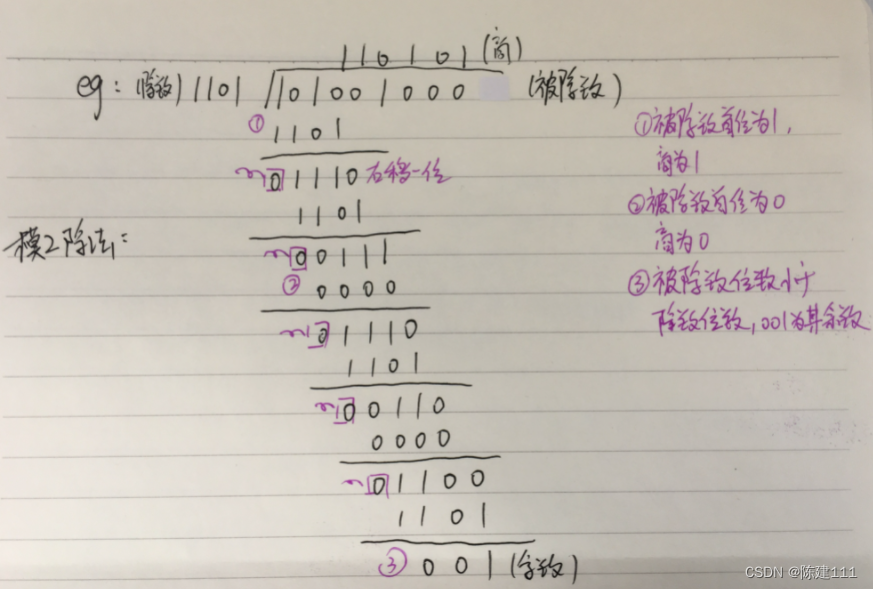 110101(商)
eg:(除数)1101 101001000 (被除数)
① 1101
01110 右移一位
1101
模2除法:
00111
② 0000
01110
1101
00110
0000
01100
1101
③ 001(余数)
①被除数首位为1,
商为1
②被除数首位为0
商为0
③被除数位数小于
除数位数,001为其余数
CSDN @陈建111